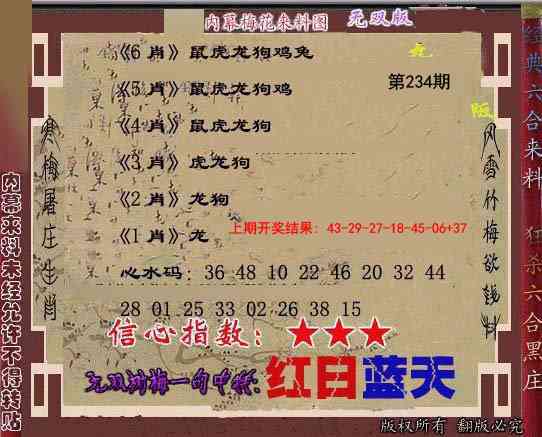 内幕梅花来料图 无双版
《6 肖》鼠虎龙狗鸡兔
《5 肖》鼠虎龙狗鸡
第234期
《4 肖》鼠虎龙狗
《3 肖》虎龙狗
《2 肖》龙狗
《1 肖》龙
上期开奖结果：43-29-27-18-45-06+37
心水码：36 48 10 22 46 20 32 44
28 01 25 33 02 26 38 15
信心指数：★★★
红日蓝天
寒梅屠庄生肖
风雪竹梅欲钱料
内幕来料未经允许不得转贴
经典六合来料 狂杀六合黑庄
版权所有 翻版必究